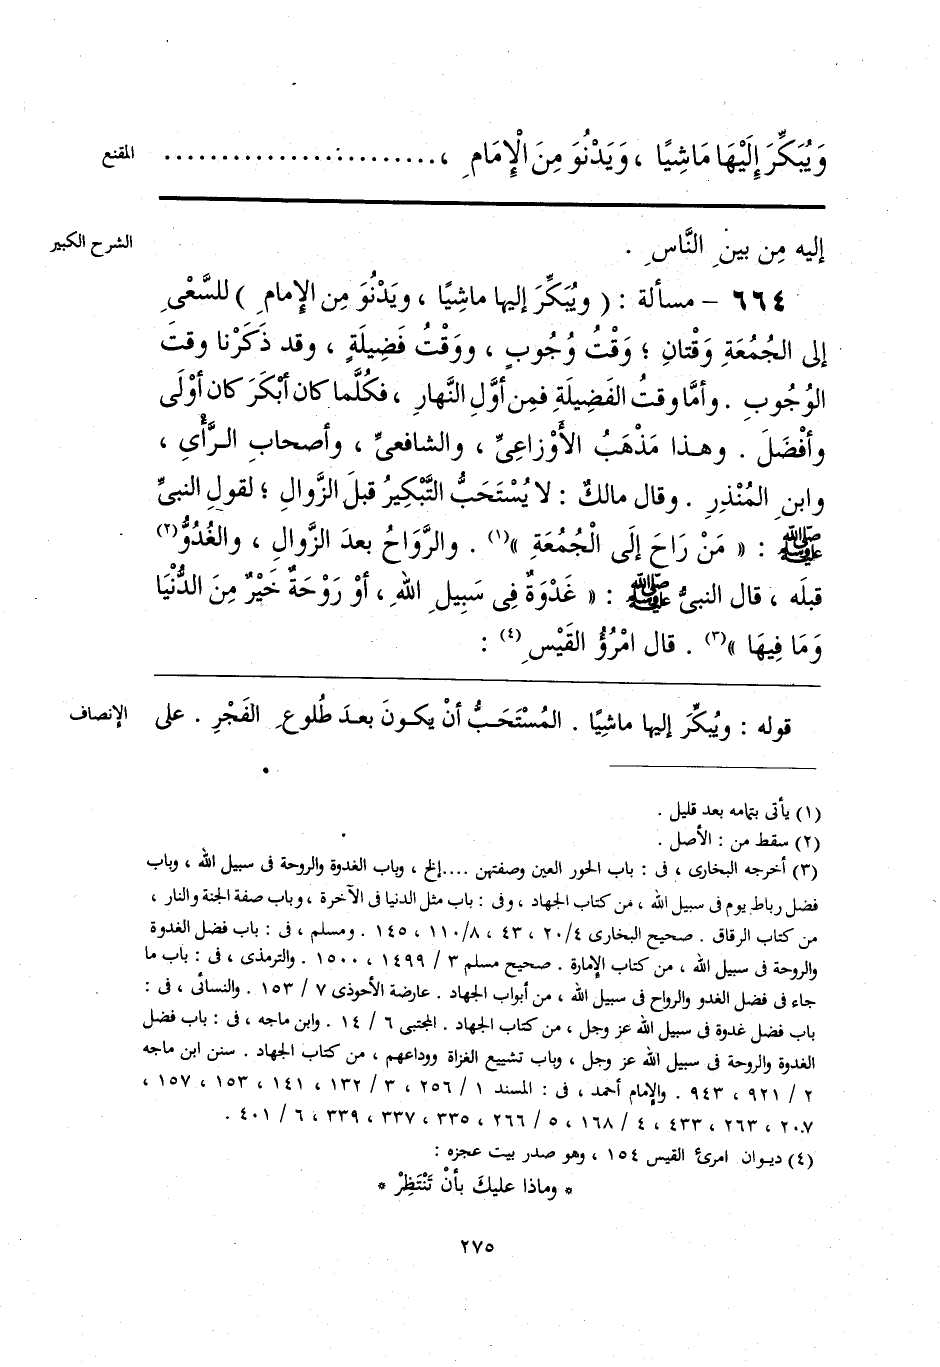 وَيُبَكِّرَ إِلَيْهَا مَاشِيًا ، وَيَدْنُوَ مِنَ الْإِمَامِ ، ........................ المقنع
إليه مِن بينِ النَّاسِ . الشرح الكبير
٦٦٤ – مسألة : ( ويُبَكِّرَ إليها ماشِيًا ، ويَدْنُوَ مِن الإِمامِ ) للسَّعْىِ
إلى الجُمُعَةِ وَقْتان ؛ وَقْتُ وُجُوبٍ ، ووَقْتُ فَضِيلَةٍ ، وقد ذَكَرْنا وقتَ
الوُجُوبِ . وأمَّا وقتُ الفَضِيلَةِ فمِن أوَّلِ النَّهارِ ، فكُلَّما كان أبْكَرَ كان أوْلَى
وأفْضَلَ . وهذا مَذْهَبُ الأوْزاعِىِّ ، والشافعىِّ ، وأصحابِ الرَّأْىِ ،
وابنِ المُنْذِرِ . وقال مالكٌ : لا يُسْتَحَبُّ التَّبْكِيرُ قبلَ الزَّوالِ ؛ لقولِ النبىِّ
ﷺ : « مَنْ رَاحَ إلَى الْجُمُعَةِ »(١) . والرَّواحُ بعدَ الزَّوالِ ، والغُدُوُّ(٢)
قبلَه ، قال النبىُّ ﷺ : « غَدْوَةٌ فِى سَبِيلِ اللهِ ، أوْ رَوْحَةٌ خَيْرٌ مِنَ الدُّنْيَا
وَمَا فِيهَا »(٣) . قال امْرُؤُ القَيْسِ(٤) :
قوله : ويُبكِّرَ إليها ماشِيًا . المُسْتَحَبُّ أنْ يكونَ بعدَ طُلوعِ الفَجْرِ . على الإنصاف
(١) يأتى بتمامه بعد قليل .
(٢) سقط من : الأصل .
(٣) أخرجه البخارى ، فى : باب الحور العين وصفتهن ....إلخ ، وباب الغدوة والروحة فى سبيل الله ، وباب
فضل رباط يوم فى سبيل الله ، من كتاب الجهاد ، وفى : باب مثل الدنيا فى الآخرة ، وباب صفة الجنة والنار ،
من كتاب الرقاق . صحيح البخارى ٢٠/٤ ، ٤٣ ، ١١٠/٨ ، ١٤٥ . ومسلم ، فى : باب فضل الغدوة
والروحة فى سبيل الله ، من كتاب الإمارة . صحيح مسلم ٣ / ١٤٩٩ ، ١٥٠٠ . والترمذى ، فى : باب ما
جاء فى فضل الغدو والرواح فى سبيل الله ، من أبواب الجهاد . عارضة الأحوذى ٧ / ١٥٣ . والنسائى ، فى :
باب فضل غدوة فى سبيل الله عز وجل ، من كتاب الجهاد . المجتبى ٦ / ١٤ . وابن ماجه ، فى : باب فضل
الغدوة والروحة فى سبيل الله عز وجل ، وباب تشييع الغزاة ووداعهم ، من كتاب الجهاد . سنن ابن ماجه
٢ / ٩٢١ ، ٩٤٣ . والإمام أحمد ، فى : المسند ١ / ٢٥٦ ، ٣ / ١٣٢ ، ١٤١ ، ١٥٣ ، ١٥٧ ،
٢٠٧ ، ٢٦٣ ، ٤٣٣ ، ٤ / ١٦٨ ، ٥ / ٢٦٦ ، ٣٣٥ ، ٣٣٧ ، ٣٣٩ ، ٦ / ٤٠١ .
(٤) ديوان امرئ القيس ١٥٤ ، وهو صدر بيت عجزه :
* وماذا عليكَ بأنْ تَنْتَظِرْ *
٢٧٥